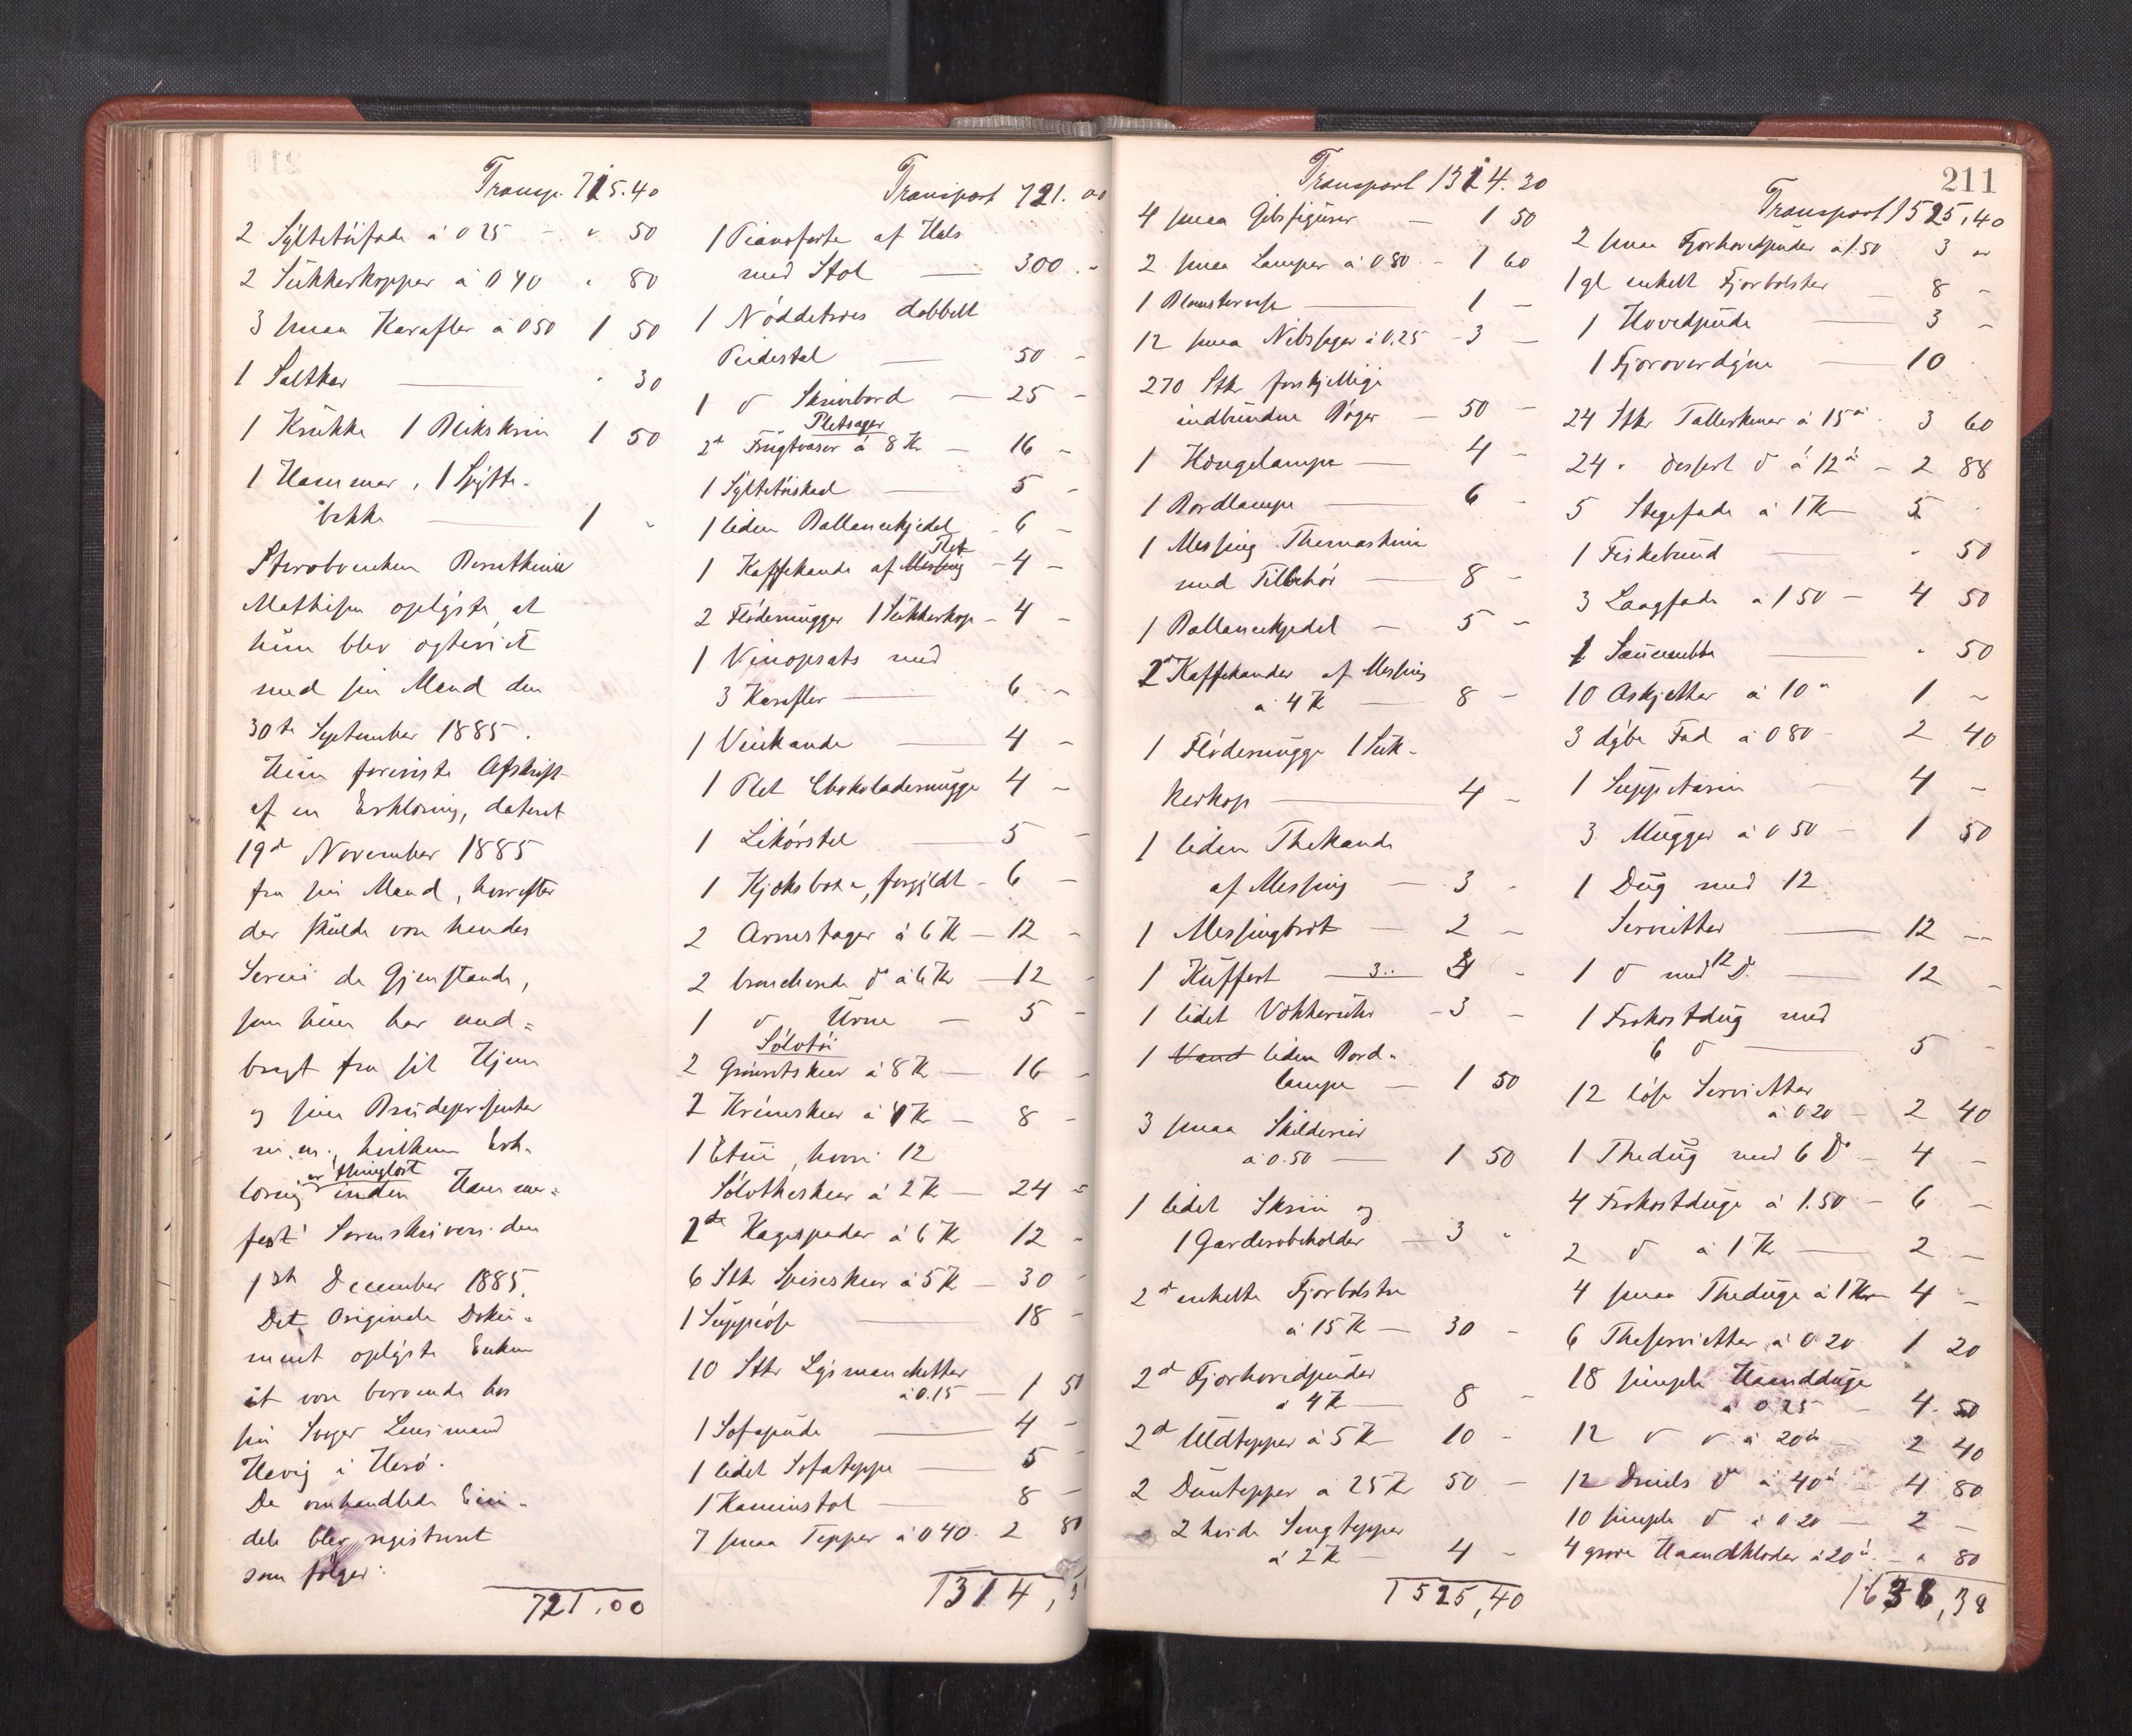 Transp. 715.40
2 Syltetöifade à 0 25 - " 50
2 Sukkerkopper à 0 40 " 80
3 smaa Karafler à 0 50 1 50
1 Saltkar " 30
1 Krukke 1 Blikskrin 1 50
1 Hammer, 1 Spytte-
bakke 1 "
Sterboenken Bernthine
Mathisen oplyste, at
hun blev ægteviet
med sin Mand den
30te September 1885.
Hun foreviste Afskrift
af en Erklæring, dateret
19d November 1885
fra sin Mand, hvorefter
der skulde være hendes
Særeie de Gjenstande,
som hun har med-
bragt fra sit Hjem
og sine Brudepresenter
m. m., hvilken Erk-
læring er thinglæst inden Hammer-
fest Sorenskriveri den
1ste December 1885.
Det originale Doku-
ment oplyste Enken
at være beroende hos
sin Svoger Lensmand
Havig i Herö.
De omhandlede Eien-
dele blev registreret
som følger:
721.00
Transport 721.00
1 Pianoforte af Hals
med Stol 300 "
1 Nöddetræes dobbelt
Pidestal 50 -
1 d Skrivbord 25 -
Pletsager
2d Frugtvaser à 8 Kr 16 -
1 Syltetöiskaal 5 -
1 liden Ballancekjedel 6 -
1 Kaffekande af Messing Plet 4 -
2 Flödemugger 1 Sukkerkop 4 -
1 Vinopsats med
3 Karafler 6 -
1 Vinkande 4 -
1 Plet Chokolademugge 4 -
1 Likörstel 5 -
1 Kjæksboxe, forgyldt 6 -
2 Armstager à 6 Kr 12 -
2 bronzerede do à 6 Kr 12 -
1 d Urne 5 -
Sölvtöi
2 Grönsatskeer à 8 Kr 16 -
2 Krémskeer à 4 Kr 8 -
1 Etui, hvori 12
Sölvtheskeer à 2 Kr 24 -
2de Kagespader à 6 Kr 12 -
6 Stkr Spiseskeer à 5 Kr 30 -
1 Suppeöse 18 -
10 Stkr Lysmanchetter
à 0.15 1 50
1 Sofapude 4 -
1 lidet Sofateppe 5 -
1 Kaminstol 8 -
7 smaa Tepper à 0 40 2 80
1314,3
Transport 1314.30
4 smaa Gibsfigurer 1 50
2 smaa Lamper à 0 80 1 60
1 Blomstervase 1 -
12 smaa Nibssager à 0.25 3 -
270 Stkr forskjellige
indbundne Böger 50 -
1 Hængelampe 4 -
1 Bordlampe 6 -
1 Messing Themaskine
med Tilbehör 8 -
1 Ballancekjedel 5 -
2d Kaffekander af Messing
à 4 Kr 8 -
1 Flödemugge 1 Suk-
kerkop 4 -
1 liden Thekande
af Messing 3 -
1 Messingbræt 2 -
1 Kuffert 3.. 4 -
1 lidet Vækkeruhr 3 -
1 Vand liden Bord-
lampe 1 50
3 smaa Skilderier
à 0.50 1 50
1 lidet Skrin og
1 Garderobeholder 3 "
2d enkelte Fjærbolstre
à 15 Kr 30 -
2d Fjærhovedpuder
à 4 Kr 8 -
2d Uldtepper à 5 Kr 10 -
2 Duntepper à 25 Kr 50 -
2 hvide Sengtepper
à 2 Kr 4 -
1525,40
211
Transport 1525,40
2 smaa Fjærhovedpuder à 1.50 3 "
1 gl enkelt Fjærbolster 8 -
1 Hovedpude 3 -
1 Fjæroverdyne 10
24 Stkr Tallerkener à 15ø 3 60
24 " dessert d à 12ø 2 88
5 Stegefade à 1 Kr 5
1 Fiskebund " 50
3 Laagfade à 1 50 4 50
1 Saucenebbe " 50
10 Askjetter à 10 ø 1 -
3 dybe Fad à 0 80 2 40
1 Suppeterin 4 -
3 Mugger à 0 50 1 50
1 Dug med 12
Servietter 12 -
1 d med 12 D 12 -
1 Frokostdug med
6 d 5 -
12 løse Servietter
à 0 20 2 40
1 Thedug med 6 Do 4 -
4 Frokostduge à 1.50 6 -
2 d à 1 Kr 2 -
4 smaa Theduge à 1 Kr 4 -
6 Theservietter à 0 20 1 20
18 simple Haandduge
à 0 25 4 50
12 d d à 20ø 2 40
12 Dreils do à 40ø 4 80
10 simple d à 0 20 2 -
4 grove Haandklæder à 20ø " 80
1638,38